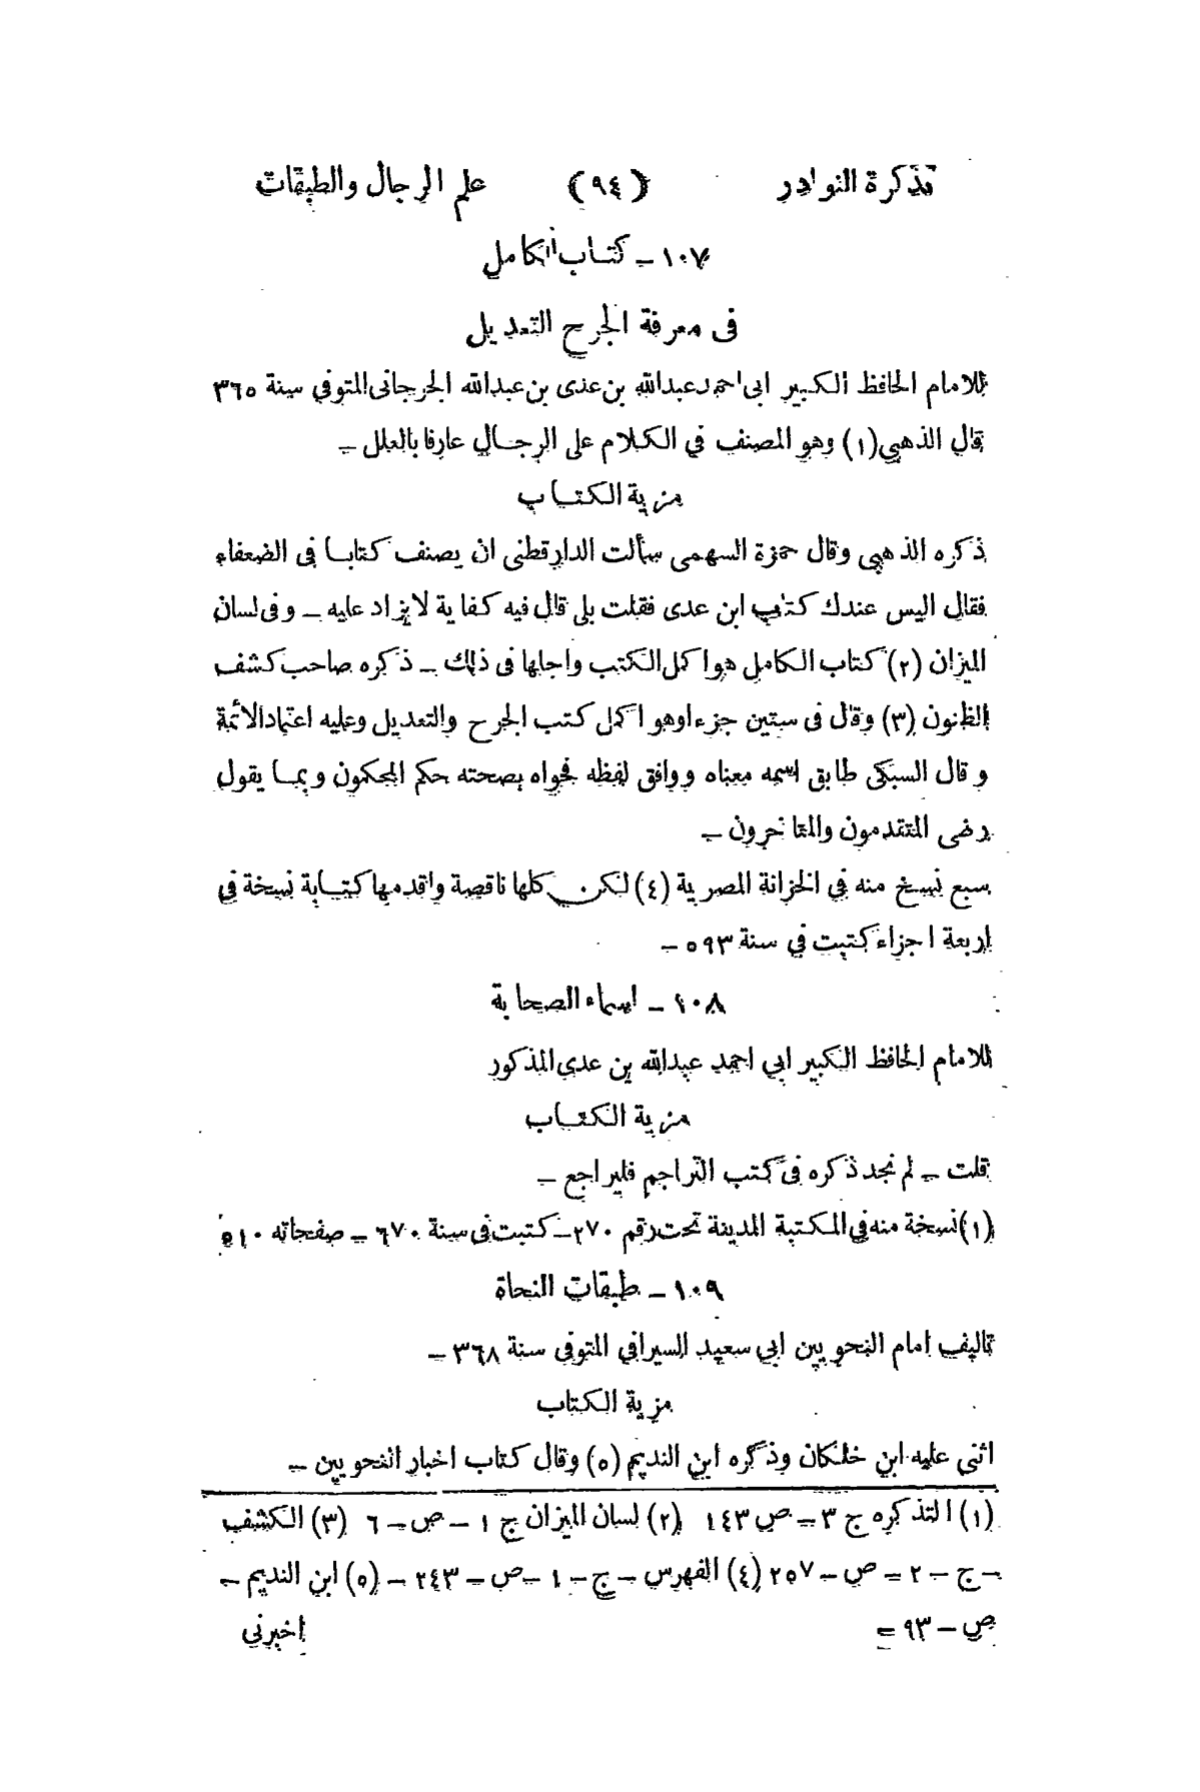 تذكرة النوادر (٩٤) علم الرجال والطبقات
١٠٧ – كتاب الكامل
فى معرفة الجرح التعديل
للامام الحافظ الكبير ابى احمد عبدالله بن عدى بن عبدالله الجرجانى المتوفي سنة ٣٦٥
قال الذهبي (١) وهو المصنف في الكلام على الرجال عارفا بالعلل –
مزية الكتاب
ذكره الذهبي وقال حمزة السهمى سألت الدارقطنى ان يصنف كتابا فى الضعفاء
فقال اليس عندك كتاب ابن عدى فقلت بلى قال فيه كفاية لا يزاد عليه – وفى لسان
الميزان (٢) كتاب الكامل هو اكمل الكتب واجلها فى ذلك – ذكره صاحب كشف
الظنون (٣) وقال فى ستين جزء اوهو اكمل كتب الجرح والتعديل وعليه اعتماد الائمة
وقال السبكى طابق اسمه معناه ووافق لفظه فحواه بصحته حكم المحكمون وبما يقول
رضى المتقدمون والمتاخرون –
سبع نسخ منه في الخزانة المصرية (٤) لكن كلها ناقصة واقدمها كتابة نسخة في
اربعة اجزاء كتبت في سنة ٥٩٣ –
١٠٨ – اسماء الصحابة
للامام الحافظ الكبير ابي احمد عبدالله بن عدى المذكور
مزية الكتاب
قلت – لم نجد ذكره فى كتب التراجم فليراجع –
(١) نسخة منه في المكتبة المدينة تحت رقم ٢٧٠ – كتبت فى سنة ٦٧٠ – صفحاته ٥١٠
١٠٩ – طبقات النحاة
تاليف امام النحويين ابي سعيد السيرافي المتوفى سنة ٣٦٨ –
مزية الكتاب
اثنى عليه ابن خلكان وذكره ابن النديم (٥) وقال كتاب اخبار النحويين –
(١) التذكره ج ٣ – ص ١٤٣ (٢) لسان الميزان ج ١ – ص – ٦ (٣) الكشف
– ج – ٢ – ص – ٢٥٧ (٤) الفهرس – ج – ١ – ص – ٢٤٣ – (٥) ابن النديم –
ص – ٩٣ = اخبرني